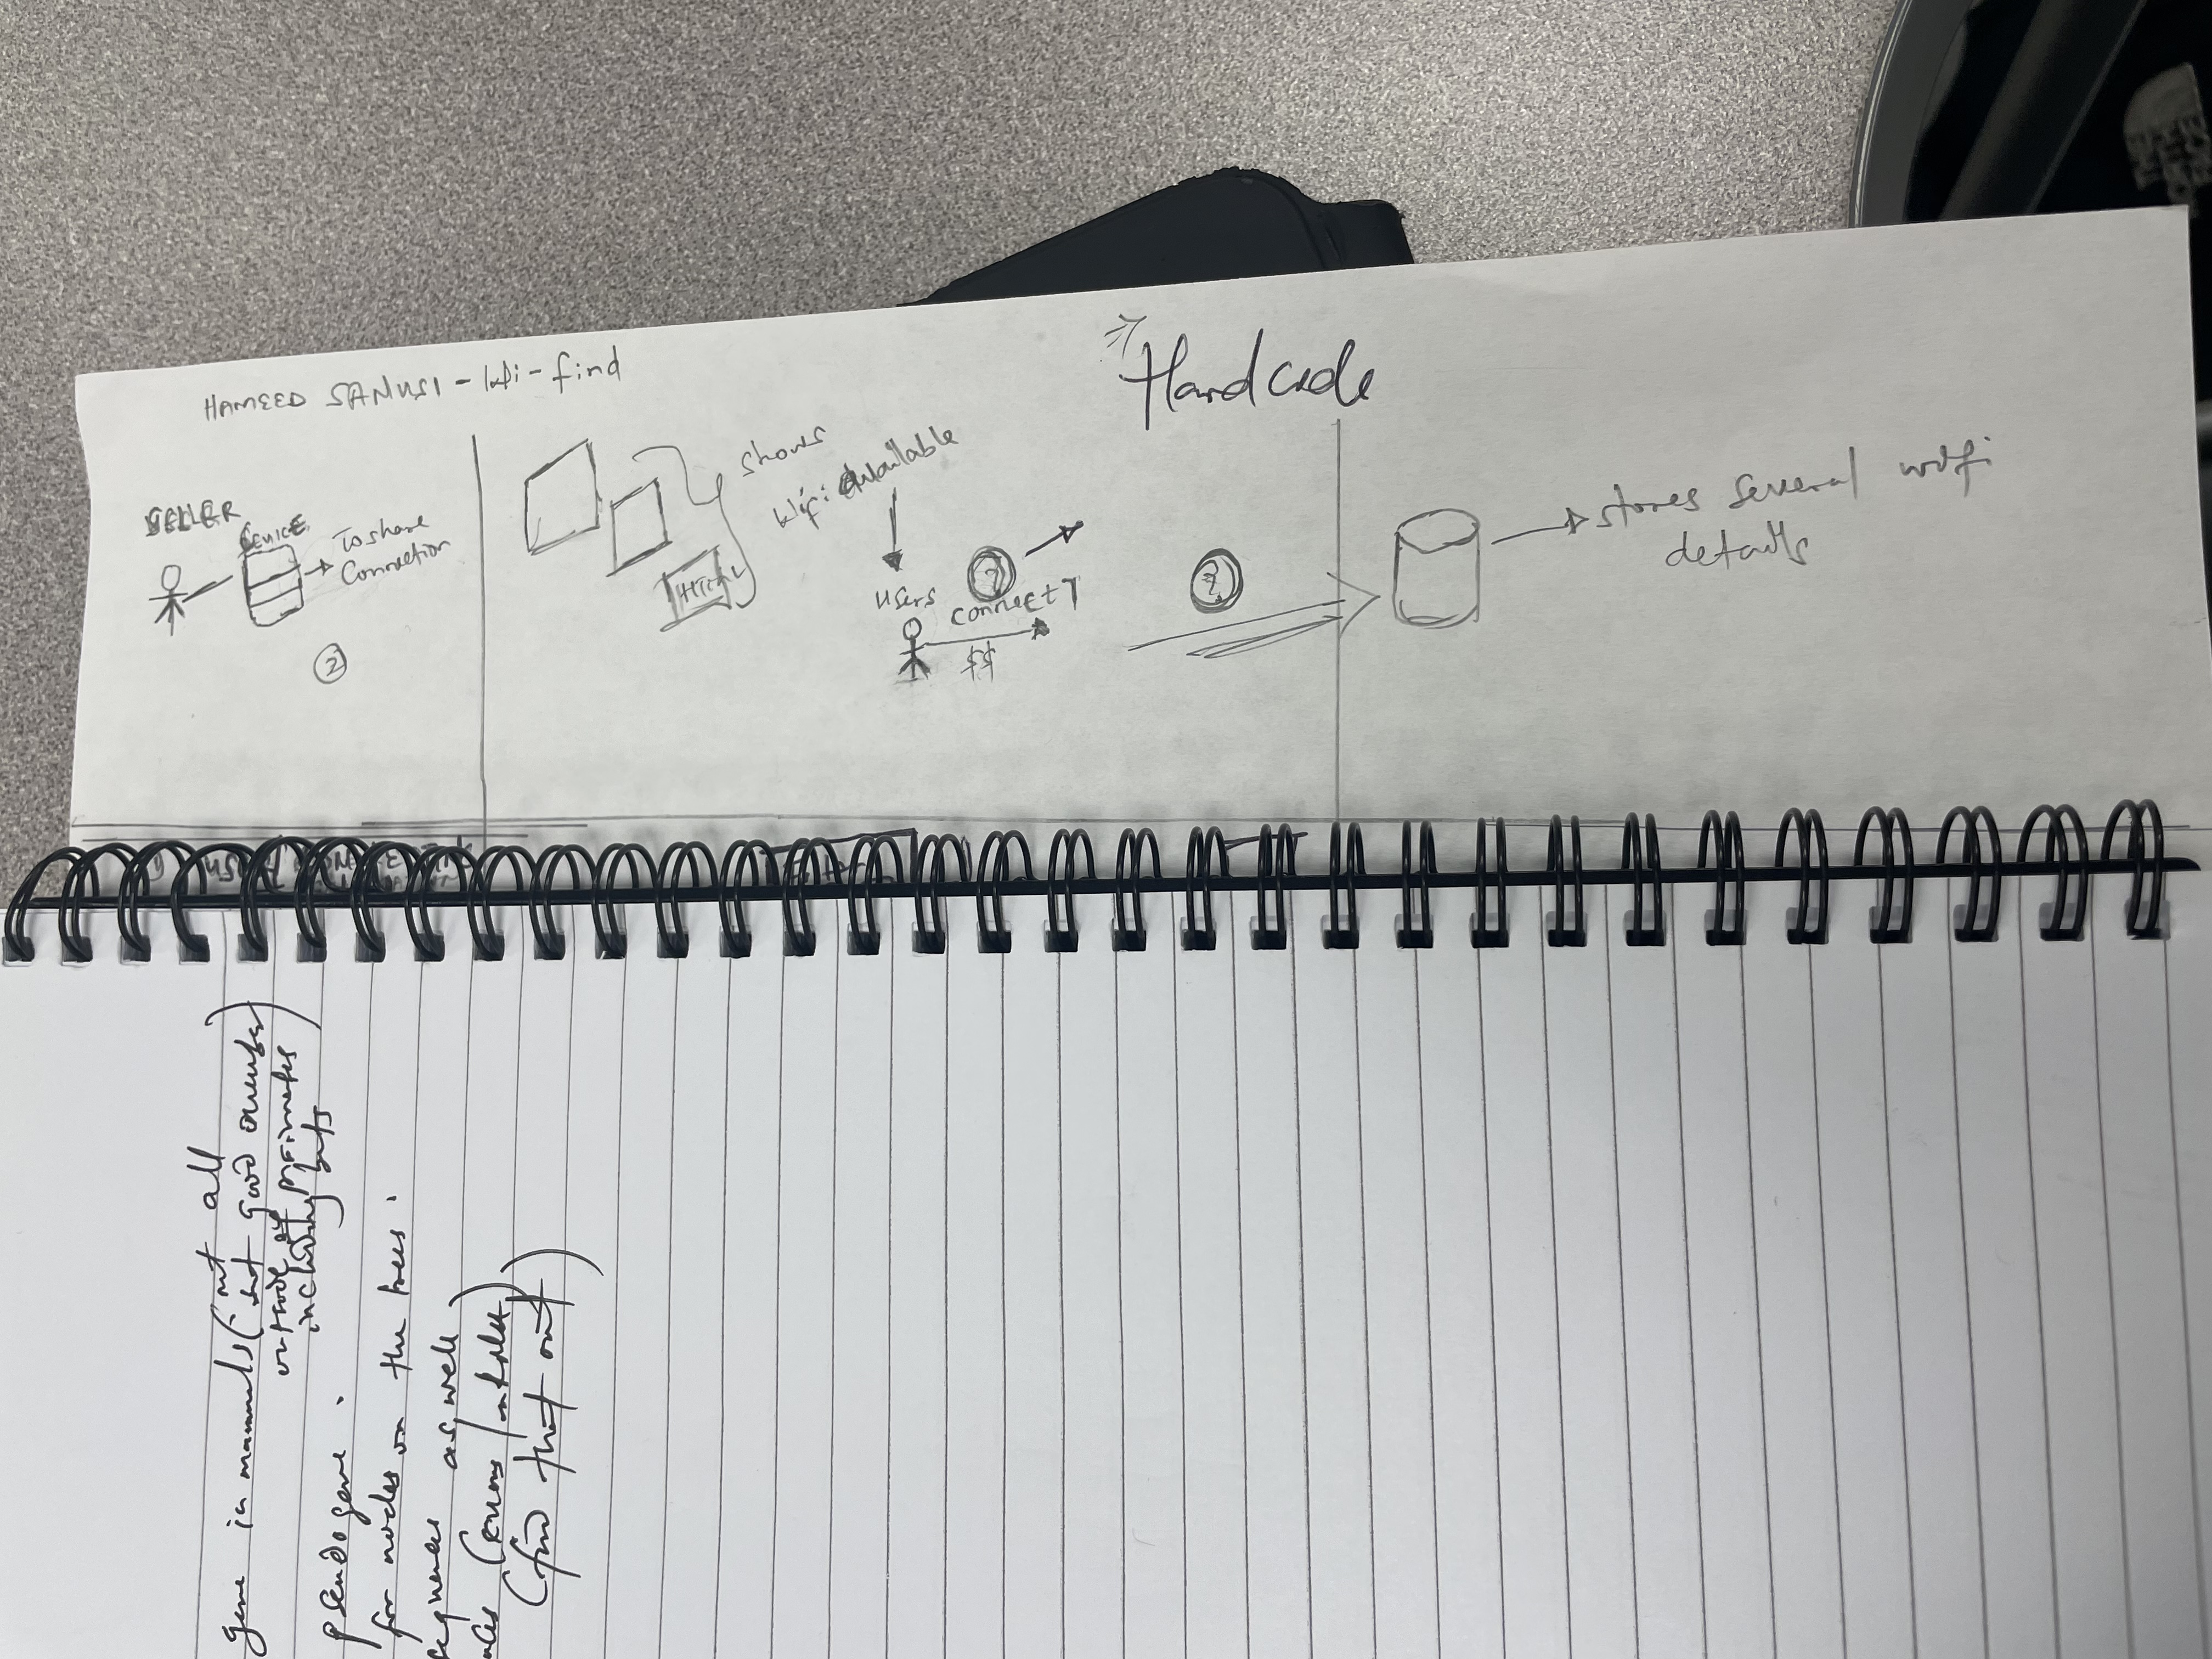 not all
gene in mammals ( but good number
outside of primates
including bats )
pseudogene .
for nodes on the trees .
sequences as well
(find that out)
HAMEED SANUSI - Wi-find
SELLER
DEVICE
to share
Connection
2
shows
wifi available
users connect
$$
Hardcode
stores several wifi
details
THE
NORTH
FACE